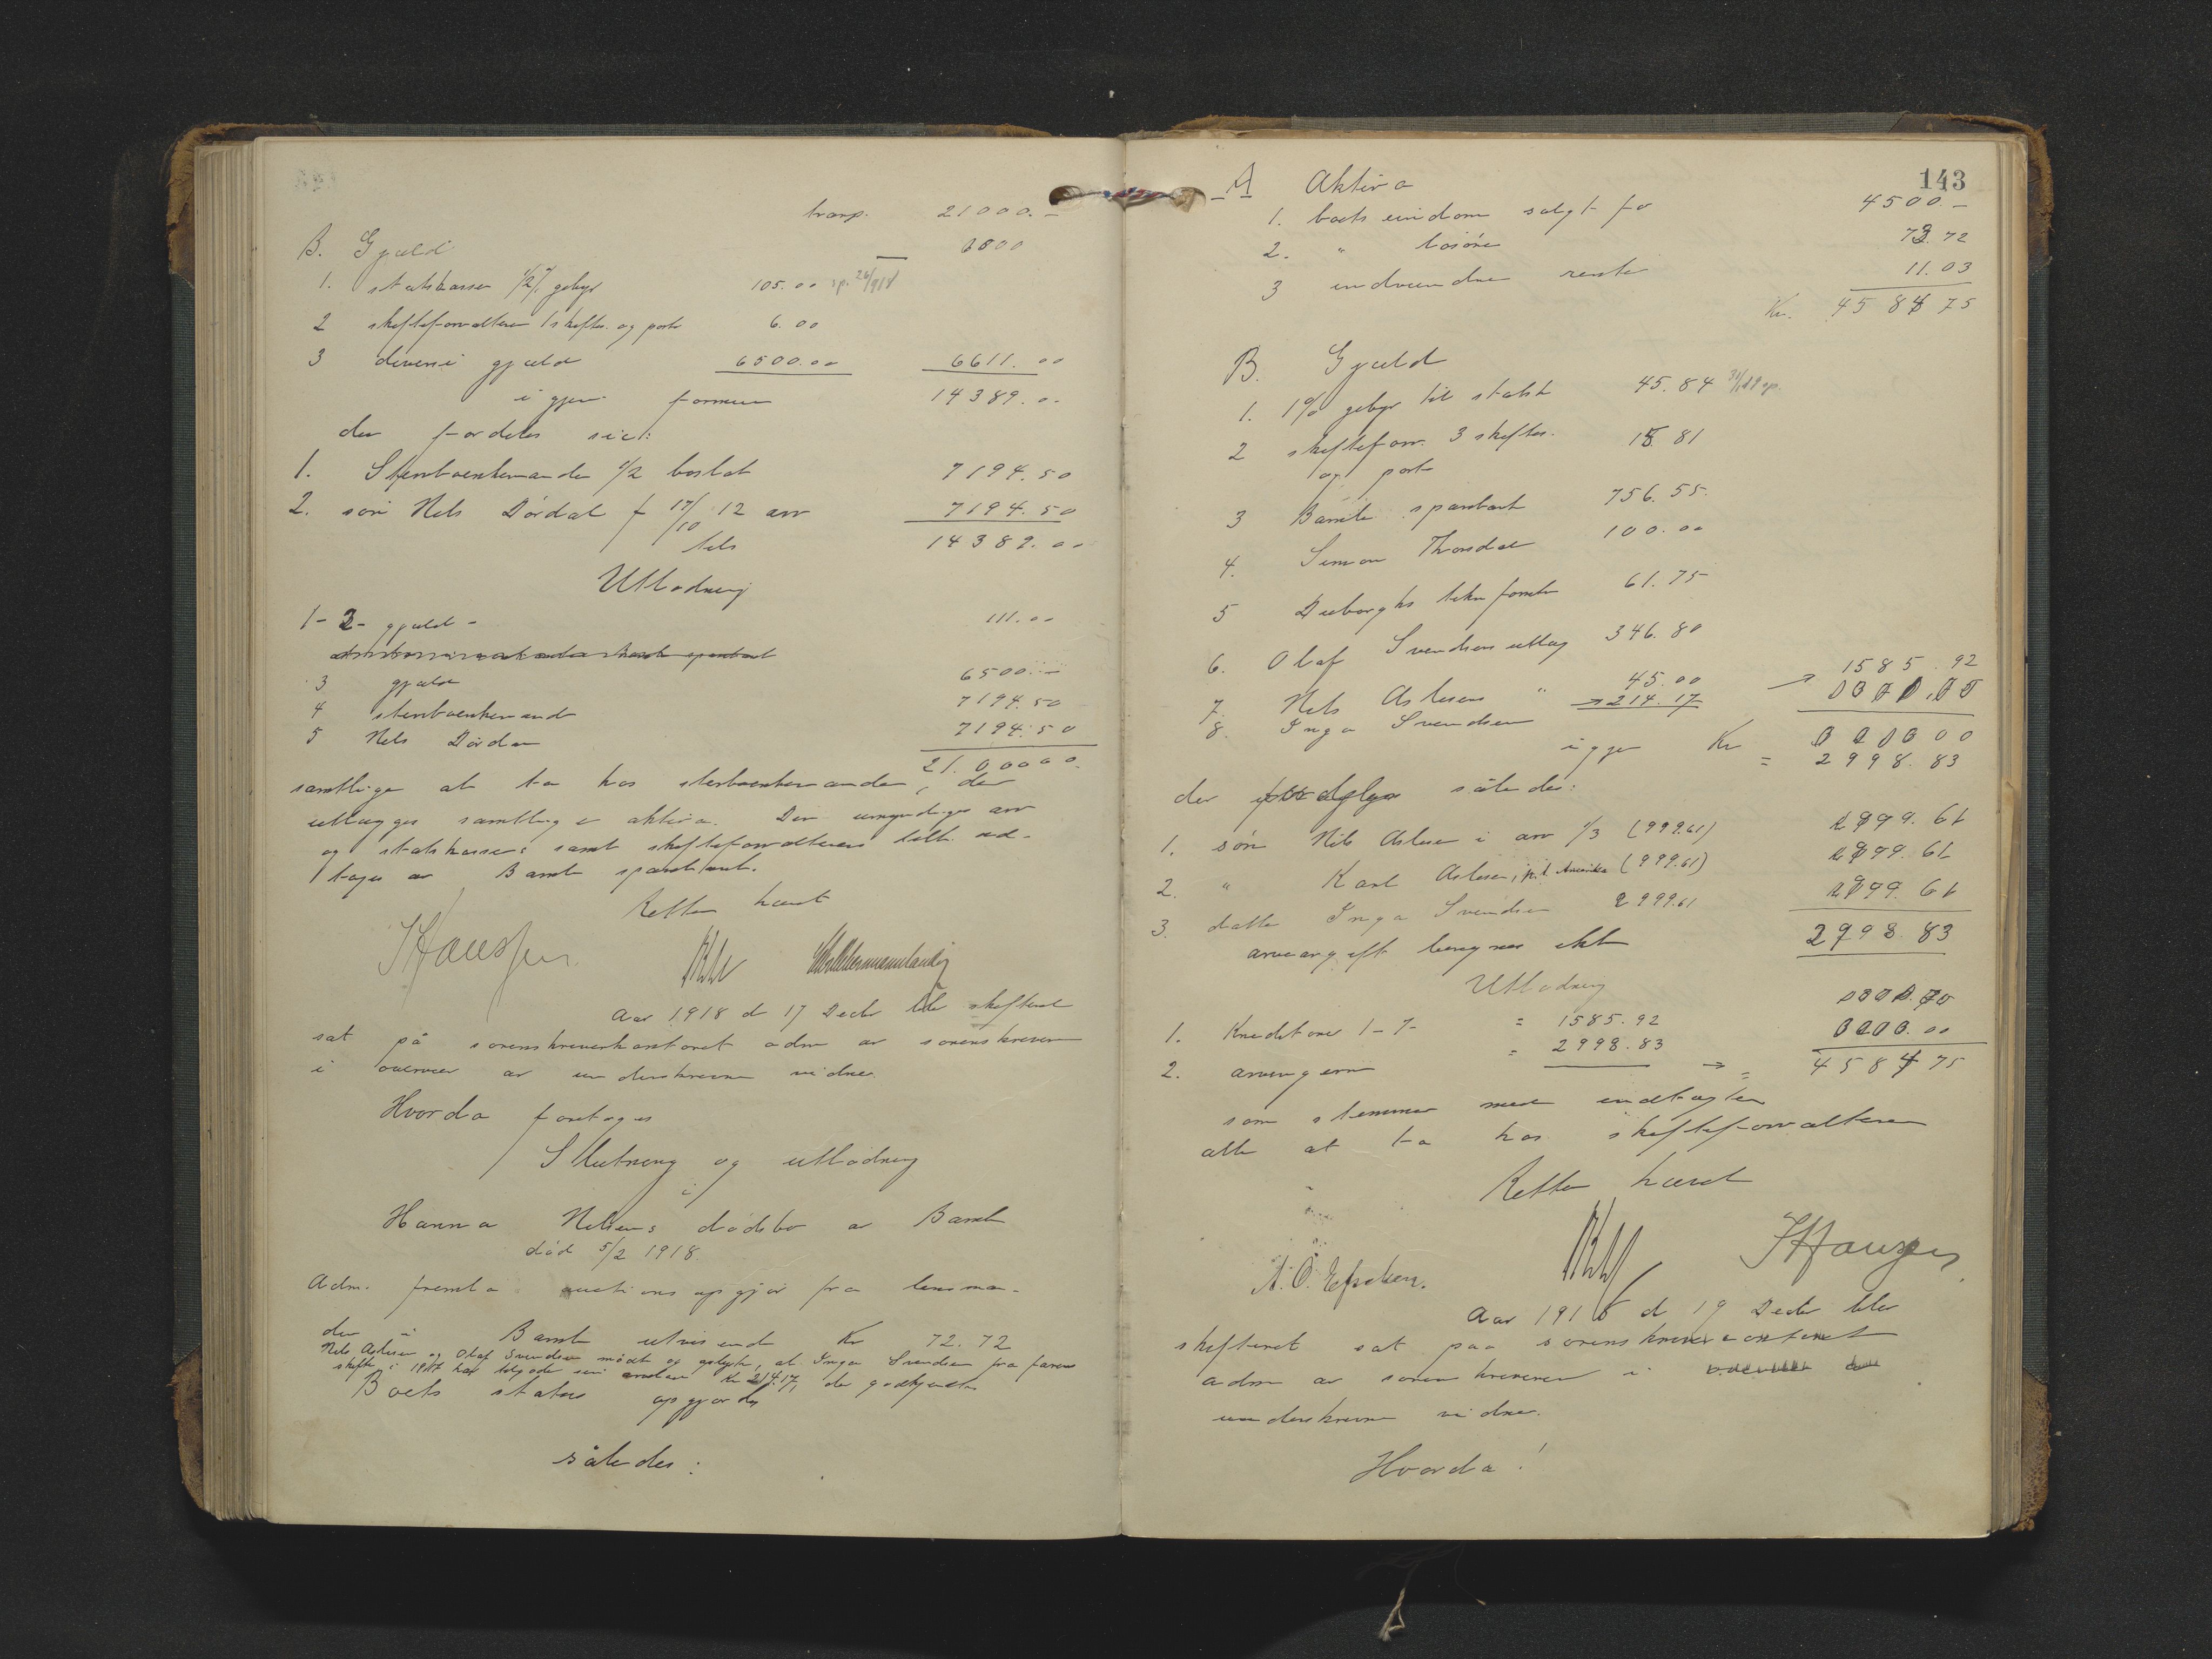 transp. 21000.–
B. Gjæld 6800
1. statskassen 1/2 % gebyr 105.00 sp. 26/9 18
2 skifteforvalteren 1 skiftes. og porto 6.00
3 diverse gjæld 6500.00 6611.00
igjen formue 14389.00
der fordeles sic:
1. Stervboenkemanden 1/2 boslod 7194.50
2. søn Nils Dørdal f 17/10 12 arv 7194.50
tils 14389.00
Utlodning
1-2- gjæld - 111.00
3 gjæld 6500.–
4 stervboenkemand 7194.50
5 Nils Dørdal 7194.50
21.000 00.
samtlige at ta hos stervboenkemanden, der
utlægges samtlige aktiva. Den umyndiges arv
og statskassens samt skifteforvalterens tilk ud-
tages av Bamble sparebank.
Retten hævet
JHanssen
Aar 1918 d 17 Decbr blev skifteret
sat på sorenskriverkontoret adm av sorenskriveren
i overvær av underskrevne vidner.
Hvorda foretoges
Slutning og utlodning
i
Hanna Nilsens dødsbo av Bamble
død 5/2 1918
Adm. fremla auctionsopgjør fra lensman-
den i Bamble utvisende Kr 72.72
Nils Aslesen og Olaf Svendsen mødt og oplyste, at Inga Svendsen fra farens
skifte i 1917 har tilgode sin arvelod Kr 214.17, der godkjendtes
Boets status opgjordes
således:
143
A Aktiva
1. boets eiendom solgt for 4500.–
2. " løsøre 73.72
3 indvundne renter 11.03
Kr. 4584 75
B. Gjæld
1. 1% gebyr til statsk 45.84 31/12 19 sp.
2 skifteforv. 3 skiftes. 15 81
og porto
3 Bamble sparebank 756.55
4. Simon Thorsdal 100.00
5 Dueborghs telefon 61.75
6. Olaf Svendsens utlæg 346.80
7. Nils Aslesens " 45.00 1585.92
8. Inga Svendsen 214.17
igjen Kr
= 2998.83
der fordeles således:
1. søn Nils Aslesen i arv 1/3 (999.61) 999.61
2. " Karl Aslesen, p.t. Amerika (999.61) 999.61
3. datter Inga Svendsen 999.61 999.61
arveavgift beregnes ikke 2998.83
Utlodning
1. Kreditorer 1-7- = 1585.92
2. arvingerne = 2998.83 = 4584 75
som stemmer med indtægten
alle at ta hos skifteforvalteren
Retten hævet
JHanssen
Aar 1918 d 19 Decbr blev
skifteret sat paa sorenskriverkontoret
adm av sorenskriveren i overvær av
underskrevne vidner.
Hvorda!